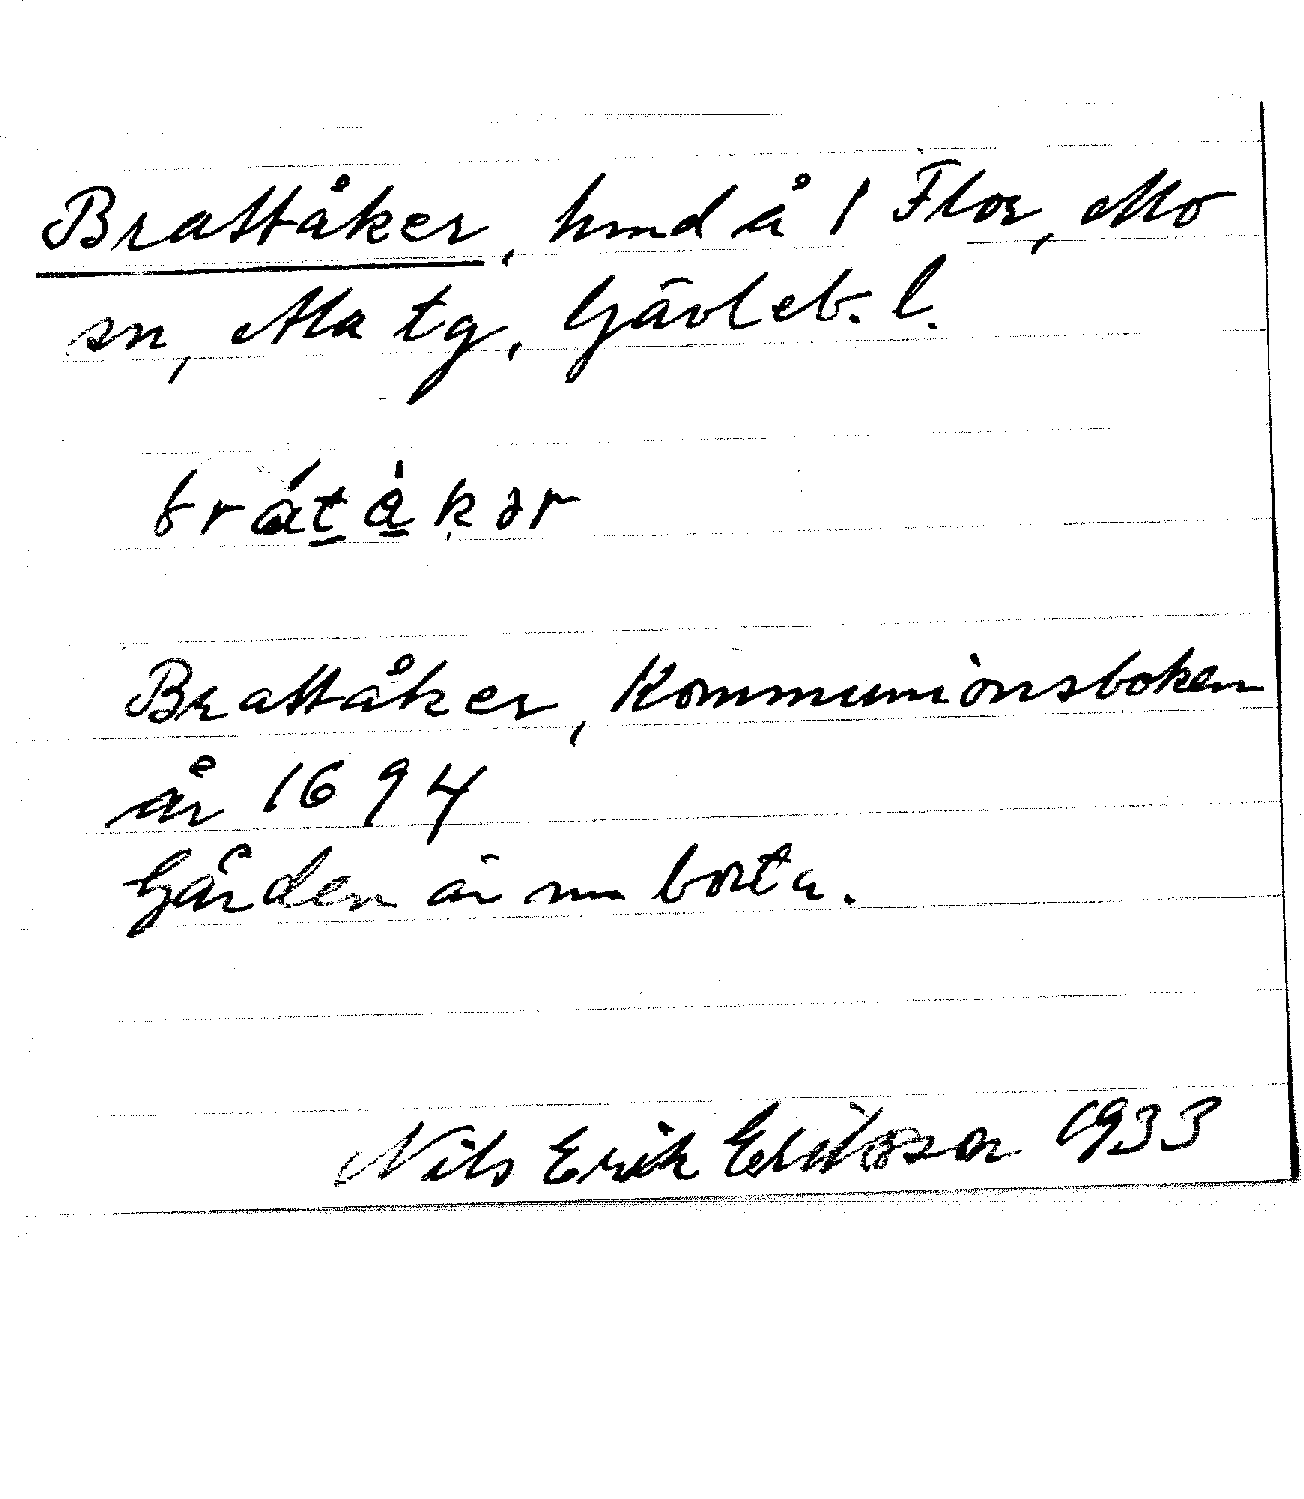 Brattåker, hmd å 1 Flor, Mo
sn, Ala tg, Gävleb. l.
brátàkər
Brattåker, Kommunionsboken
år 1694
Gården är nu borta.
Nils Erik Eriksson 1933